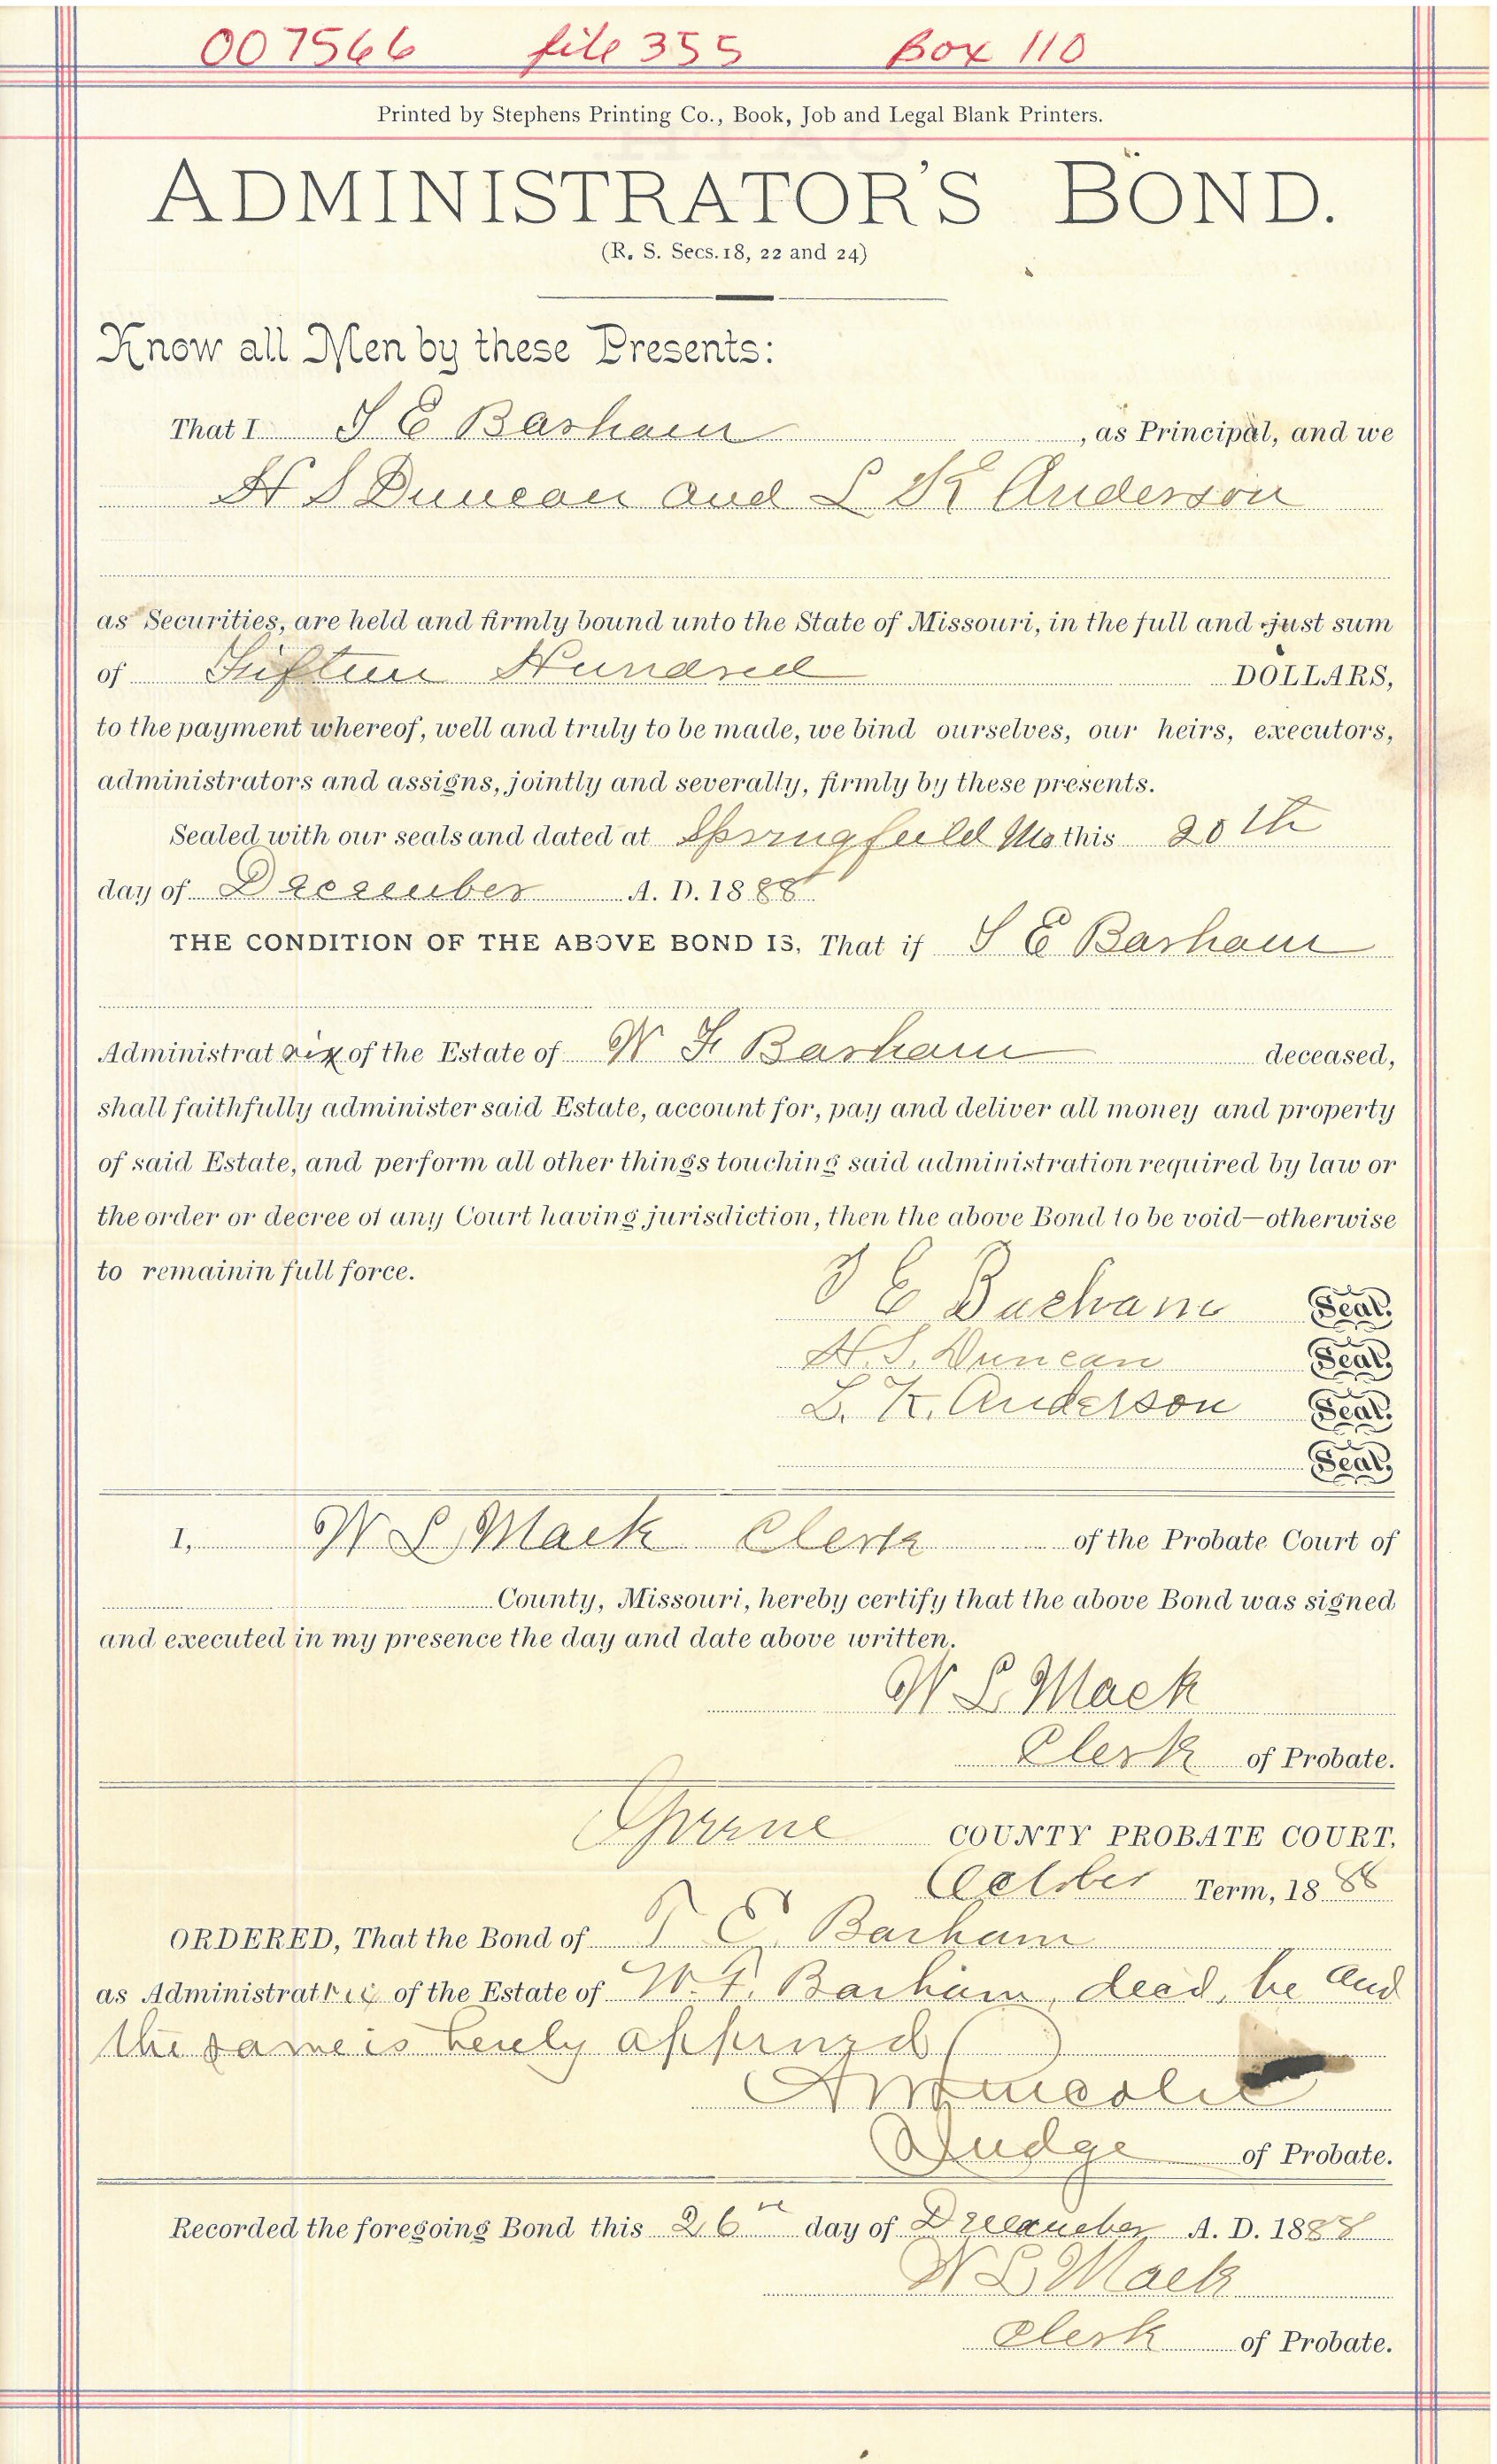 007566 file 355 Box 110
Printed by Stephens Printing Co., Book, Job and Legal Blank Printers.
ADMINISTRATOR'S BOND.
(R. S. Secs. 18, 22 and 24)
Know all Men by these Presents:
That I S E Basham , as Principal, and we
H S Duncan and L K Anderson
as Securities, are held and firmly bound unto the State of Missouri, in the full and just sum
of Fifteen Hundred DOLLARS,
to the payment whereof, well and truly to be made, we bind ourselves, our heirs, executors,
administrators and assigns, jointly and severally, firmly by these presents.
Sealed with our seals and dated at Springfield Mo this 20th
day of December A. D. 1888
THE CONDITION OF THE ABOVE BOND IS, That if S E Basham
Administratrix of the Estate of W F Basham deceased,
shall faithfully administer said Estate, account for, pay and deliver all money and property
of said Estate, and perform all other things touching said administration required by law or
the order or decree of any Court having jurisdiction, then the above Bond to be void—otherwise
to remainin full force.
S E Basham Seal.
H. S. Duncan Seal.
L. K. Anderson Seal.
Seal.
I, W L Mack Clerk of the Probate Court of
County, Missouri, hereby certify that the above Bond was signed
and executed in my presence the day and date above written.
W L Mack
Clerk of Probate.
Greene COUNTY PROBATE COURT,
October Term, 1888
ORDERED, That the Bond of T. E. Basham
as Administratrix of the Estate of W. F. Basham, decd, be and
the same is hereby approved
Judge of Probate.
Recorded the foregoing Bond this 26th day of December A. D. 1888
W L Mack
Clerk of Probate.